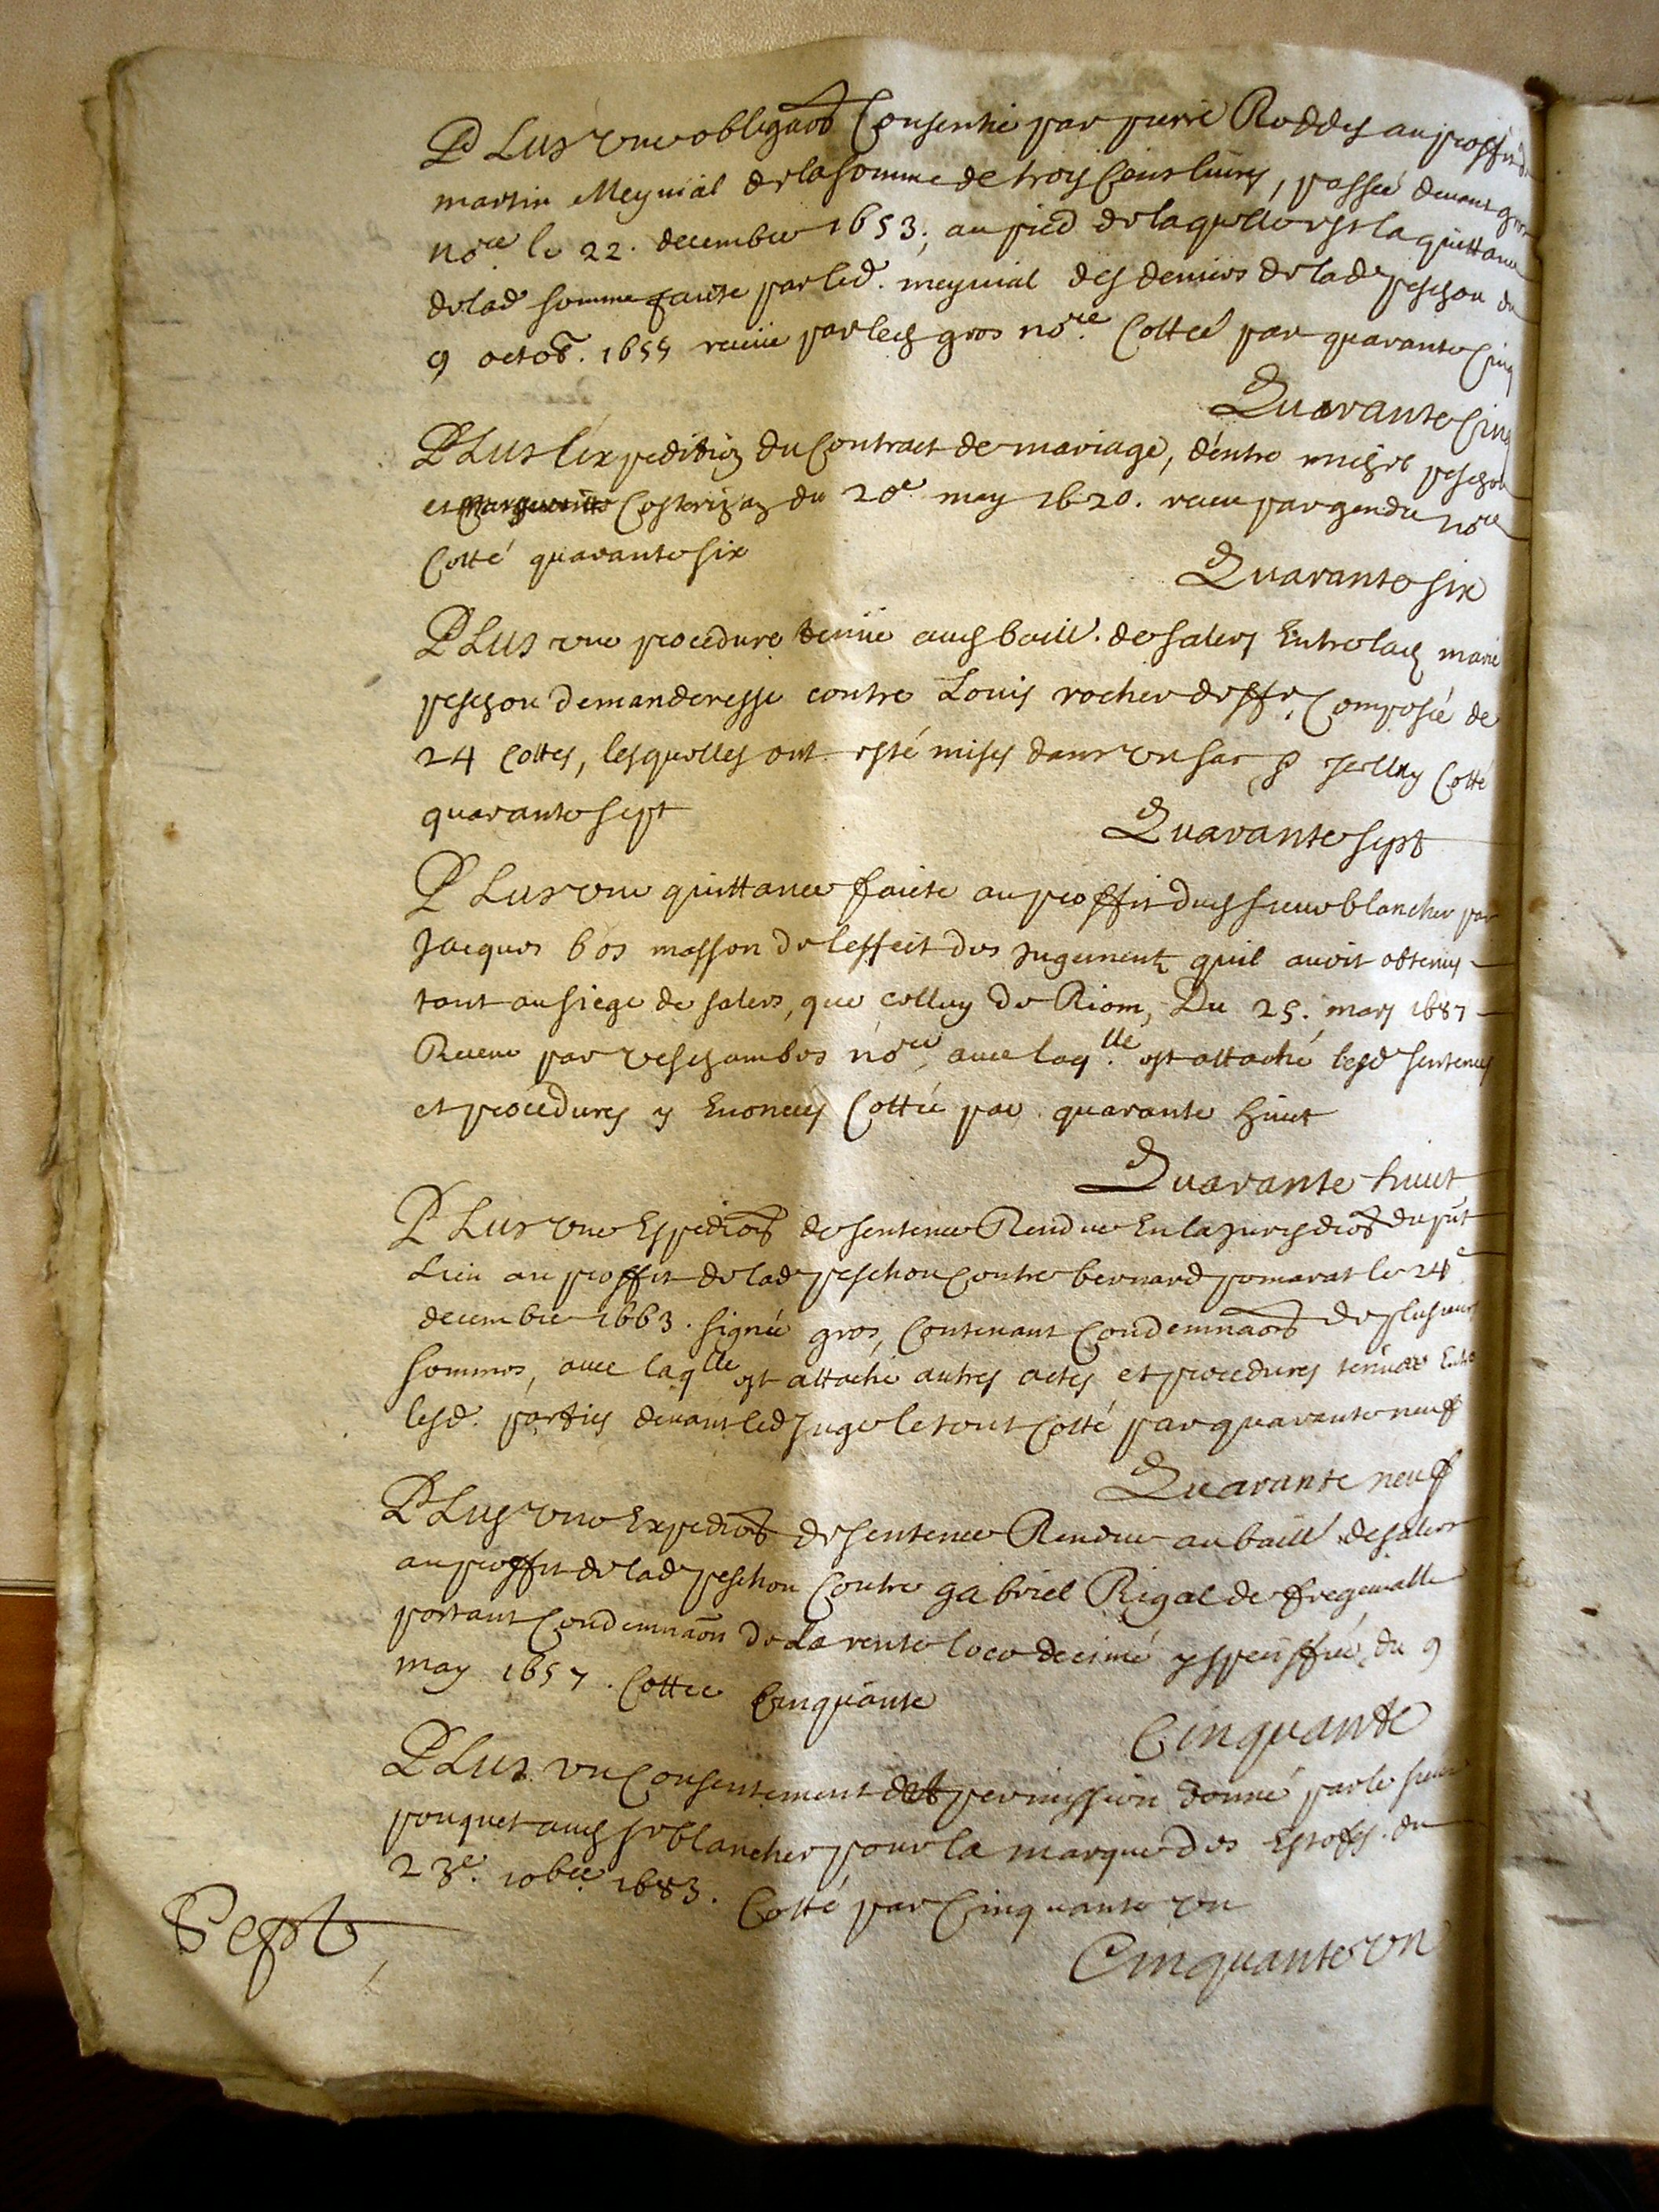 PLus vne obligaon Consentie par pierre Roddes au proffit de
martin Meynial de la somme de trois Cens livres, passée devant gros
nore le 22. decembre 1653; au pied de laquelle est la quittance
de lad somme faicte par led. meynial des deniers de lad peschou du
9 octob. 1655 receüe par led gros nore. Cottée par quarante Cinq
Quarante Cinq
PLus l'expedition du Contract de mariage, d'entre michel peschou
et du 20e may 1620. receu par nore
Cotté quarante six
Quarante six
PLus vne procedure tenüe aud baill. de salers Entre lad marie
peschou demanderesse contre Louis rocher deffr, Composée de
24 cottes, lesquelles ont esté mises dans vn sac & Icelluy Cotté
quarante sept
Quarante sept
PLus vne quittance faicte au proffit dud sieur blancher par
Jacques bos masson de l'effect des Jugements quil avoit obtenus
tant au siege de salers, que celluy de Riom, Du 25. mars 1687
Receue par veschambes nore, avec laqlle. est attaché lesd sentences
et procedures y Enoncées Cottée par quarante huict
Quarante huict
PLus vne Expedion de sentence Rendue En la Jurisdion du pnt
Lieu au proffit de lad peschou Contre bernard pomarat le 24e
decembre 1663. signée gros, Contenant Condemnaon de plusieurs
sommes, avec laqlle est attaché autres actes et procedures tenües Entre
lesd. parties devant led Juge le tout Cotté par quarante neuf
Quarante neuf
PLus vne Expedion de sentence Rendue au baill. de salers
au proffit de lad peschou Contre gabriel Rigal de fregevialle
portant Condemnaon de La rente loco decimé y speciffiée, du 9
may 1657. Cottée Cinquante
Cinquante
PLus vn Consentement et permission donné par le sieur
pouquet aud sr blancher pour la marque des Estofes. du
23e. 10bre 1683. Cotté par Cinquante vn
Cinquante vn
Sept